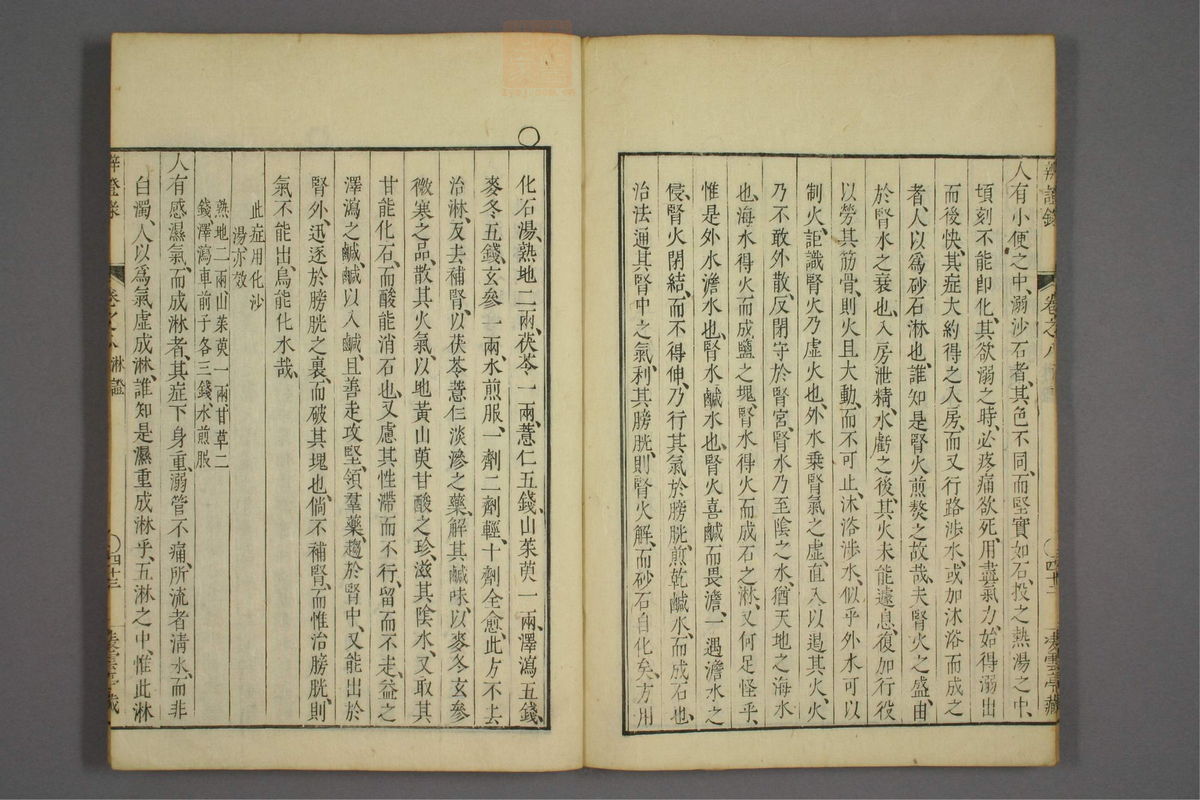 辨證錄 卷之八 凌雲亭藏
人有小便之中、溺沙石者、其色不同、而堅實如石、投之熱湯之中、
頃刻不能卽化、其欲溺之時、必疼痛欲死、用盡氣力、始得溺出
而後快、其症大約得之入房、而又行路涉水、或加沐浴而成之
者、人以爲砂石淋也、誰知是腎火煎熬之故哉、夫腎火之盛、由
於腎水之衰也、入房泄精、水虧之後、其火未能遽息、復加行役
以勞其筋骨、則火且大動、而不可止、沐浴涉水、似乎外水可以
制火、詎識腎火乃虛火也、外水乘腎氣之虛、直入以遏其火、火
乃不敢外散、反閉守於腎宮、腎水乃至陰之水、猶天地之海水
也、海水得火而成鹽之塊、腎水得火而成石之淋、又何足怪乎、
惟是外水澹水也、腎水鹹水也、腎火喜鹹而畏澹、一遇澹水之
侵、腎火閉結、而不得伸、乃行其氣於膀胱、煎乾鹹水、而成石也、
治法通其腎中之氣、利其膀胱、則腎火解、而砂石自化矣、方用
〇
化石湯、熟地二兩、茯苓一兩、薏仁五錢、山茱萸一兩、澤瀉五錢、
麥冬五錢、玄參一兩、水煎服、一劑二劑輕、十劑全愈、此方不去
治淋、反去補腎、以茯苓薏仁淡滲之藥、解其鹹味、以麥冬玄參
微寒之品、散其火氣、以地黃山萸甘酸之珍、滋其陰水、又取其
甘能化石、而酸能消石也、又慮其性滯而不行、留而不走、益之
澤瀉之鹹、鹹以入鹹、且善走攻堅、領羣藥、趨於腎中、又能出於
腎外、迅逐於膀胱之裏、而破其塊也、倘不補腎、而惟治膀胱、則
氣不能出、烏能化水哉、
此症用化沙
湯亦效
熟地二兩山茱萸一兩甘草二
錢、澤瀉車前子各三錢水煎服
人有感濕氣、而成淋者、其症下身重、溺管不痛、所流者淸水、而非
白濁、人以爲氣虛成淋、誰知是濕重成淋乎、五淋之中、惟此淋
辨證錄 卷之八 淋證 〇四十三 凌雲亭藏